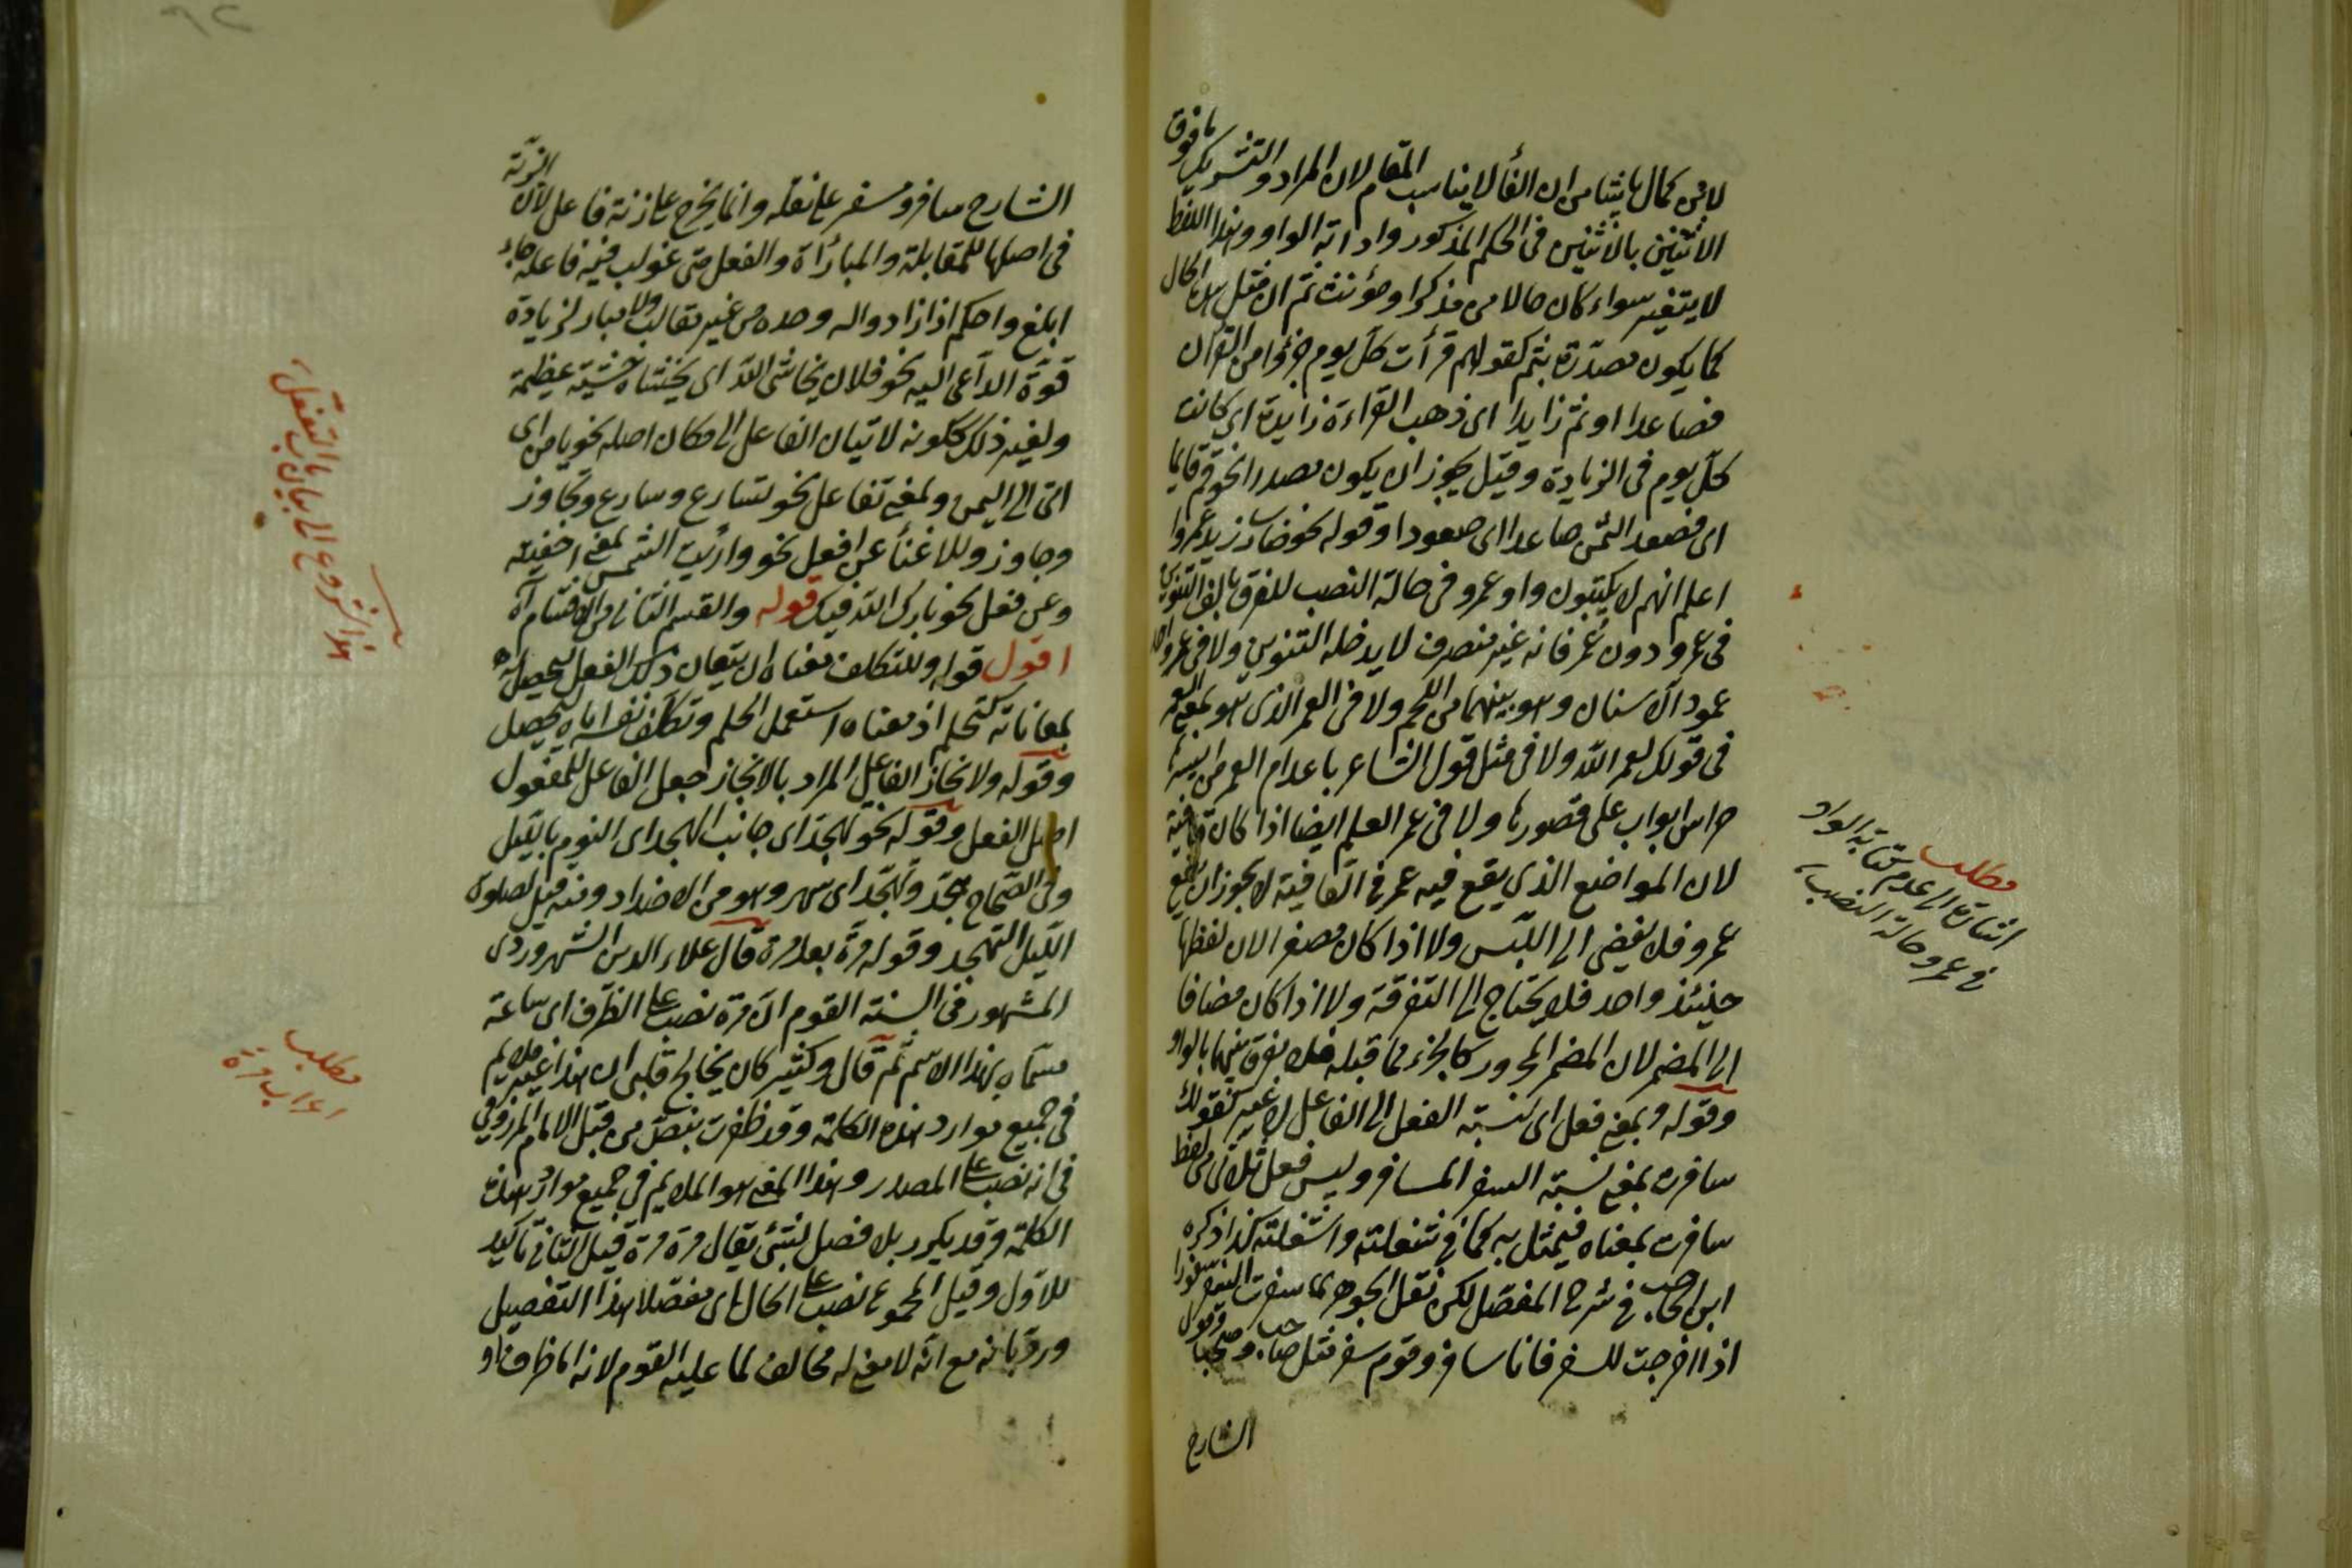 لابن كمال باشا من ان الفا لا يناسب المقام لان المراد والتشريك ما فوق
الاثنين بالاثنين في الحكم المذكور واداته الواو وهذا اللفظ
لا يتغير سواء كان حالا من مذكر او مؤنث ثم ان مثل هذا الحال
كما يكون مصدرة بثم كقولهم قرأت كل يوم جزؤا من القرآن
فصاعدا او ثم زايدا اى ذهب القراءة زايدة اى كانت
كل يوم في الزيادة وقيل يجوز ان يكون مصدرا نحو قم قايما
اى فصعد الثمن صاعدا اى صعودا وقوله نحو ضارب زيد عمروا
اعلم انهم لا يكتبون واو عمرو في حالة النصب للفرق بالف التنوين
في عمرو دون عمر فانه غير منصرف لا يدخله التنوين ولا في عمر واحد
عمود الاسنان وهو بينهما من اللحم ولا في العمر الذى هو بمعنى العمر
في قولك لعمر الله ولا في مثل قول الشاعر باعدام العمر من اسيرها
حراس ابواب على قصورها ولا في عمر العلم ايضا اذا كان قافية
لان المواضع الذي يقع فيه عمر في القافية لا يجوز ان يقع
عمرو فلا يفضي الى اللبس ولا اذا كان مصغرا لان لفظهما
حينئذ واحد فلا يحتاج الى التفرقة ولا اذا كان مضافا
الى المضمر لان المضمر المجرور كالجزء مما قبله فلا يفرق بينهما بالواو
وقوله وبمعنى فعل اى كنسبة الفعل الى الفاعل لا غير كقولك
سافرت بمعنى نسبة السفر المسافر وليس فعل ثلاثى من لفظ
سافرت بمعناه فيمثل به كما في شغلته واشغلته كذا ذكره
ابن الحاجب في شرح المفصل لكن نقل الجوهرى سفرت السفر سفورا
اذا خرجت للسفر فانا سافر وقوم سفر مثل صاحب وصحب وقول
الشارح
مطلب
اشارة الى عدم كتابة الواو
في عمرو حالة النصب
الشارح سافر وسفر على نقله وانما يخرج على زنة فاعل لان الزنة
في اصلها للمقابلة والمبارأة والفعل متى غولب فيه فاعله جاء
ابلغ واحكم اذا زاد واله وحده من غير مقالب ولا مبار لزيادة
قوة الداعى اليه نحو فلان يخاشى الله اى يخشاه خشية عظيمة
ولغير ذلك ككونه لاتيان الفاعل الى مكان اصله نحو يامن اى
اتى الى اليمن وبمعنى تفاعل نحو تسارع وسارع وتجاوز
وجاوز وللاغنأ عن افعل نحو وارأيت الشمس بمعنى اخفيته
وعن فعل نحو بارك الله فيك قوله والقسم الثانى من الاقسام آه
اقول قوله وللتكلف معناه ان يتعان ذلك الفعل ليحصل له
بمعاناته كتحلم اذ معناه استعمل الحلم وتكلف نفسه اياه ليحصل
وقوله ولاتخاذ الفاعل المراد بالاتخاذ جعل الفاعل للمفعول
اصل الفعل وقوله نحو تهجد اى جانب الهجد اى النوم بالليل
وفى الصحاح هجد وتهجد اى سهر وهو من الاضداد ومنه قيل لصلوة
الليل التهجد وقوله مرة بعد مرة قال علاء الدين الشهروردى
المشهور في السنة القوم ان مرة نصب على الظرف اى ساعة
مسماة بهذا الاسم ثم قال وكثير كان يخالج قلبى ان هذا غير ملايم
في جميع موارد هذه الكلمة وقد ظفرت بنص من قبل الامام المرزوقى
في انه نصب على المصدر وهذا المعنى هو الملايم في جميع موارد هذه
الكلمة وقد يكرر بلا فصل بشئ يقال مرة مرة قيل الثانى تاكيد
للاول وقيل المجموع نصب على الحال اى مفصلا هذا التفصيل
ورد بانه مع انه لا معنى له مخالف لما عليه القوم لانه اما ظرف او
هذا شروع الى بيان باب التفعل
مطلب
اعراب مرة